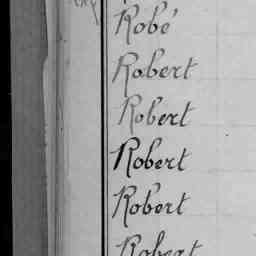 Robé
Robert
Robert
Robert
Robert
Robert